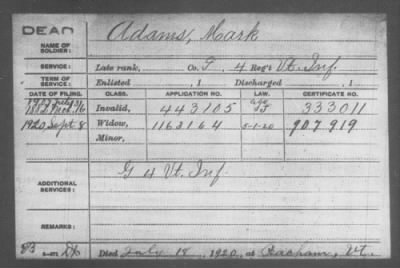 DEAD
Adams, Mark
NAME OF
SOLDIER:
SERVICE:
Late rank, Co. G, 4 Reg't Vt. Inf.
TERM OF
SERVICE:
Enlisted , 1 Discharged , 1
DATE OF FILING. CLASS. APPLICATION NO. LAW. CERTIFICATE NO.
Invalid, 443105 333011
1920 Sept. 8 Widow, 1163164 5-1-20 907919
Minor,
ADDITIONAL
SERVICES:
G 4 Vt. Inf.
REMARKS:
Died July 18, 1920, at Peacham, Vt.